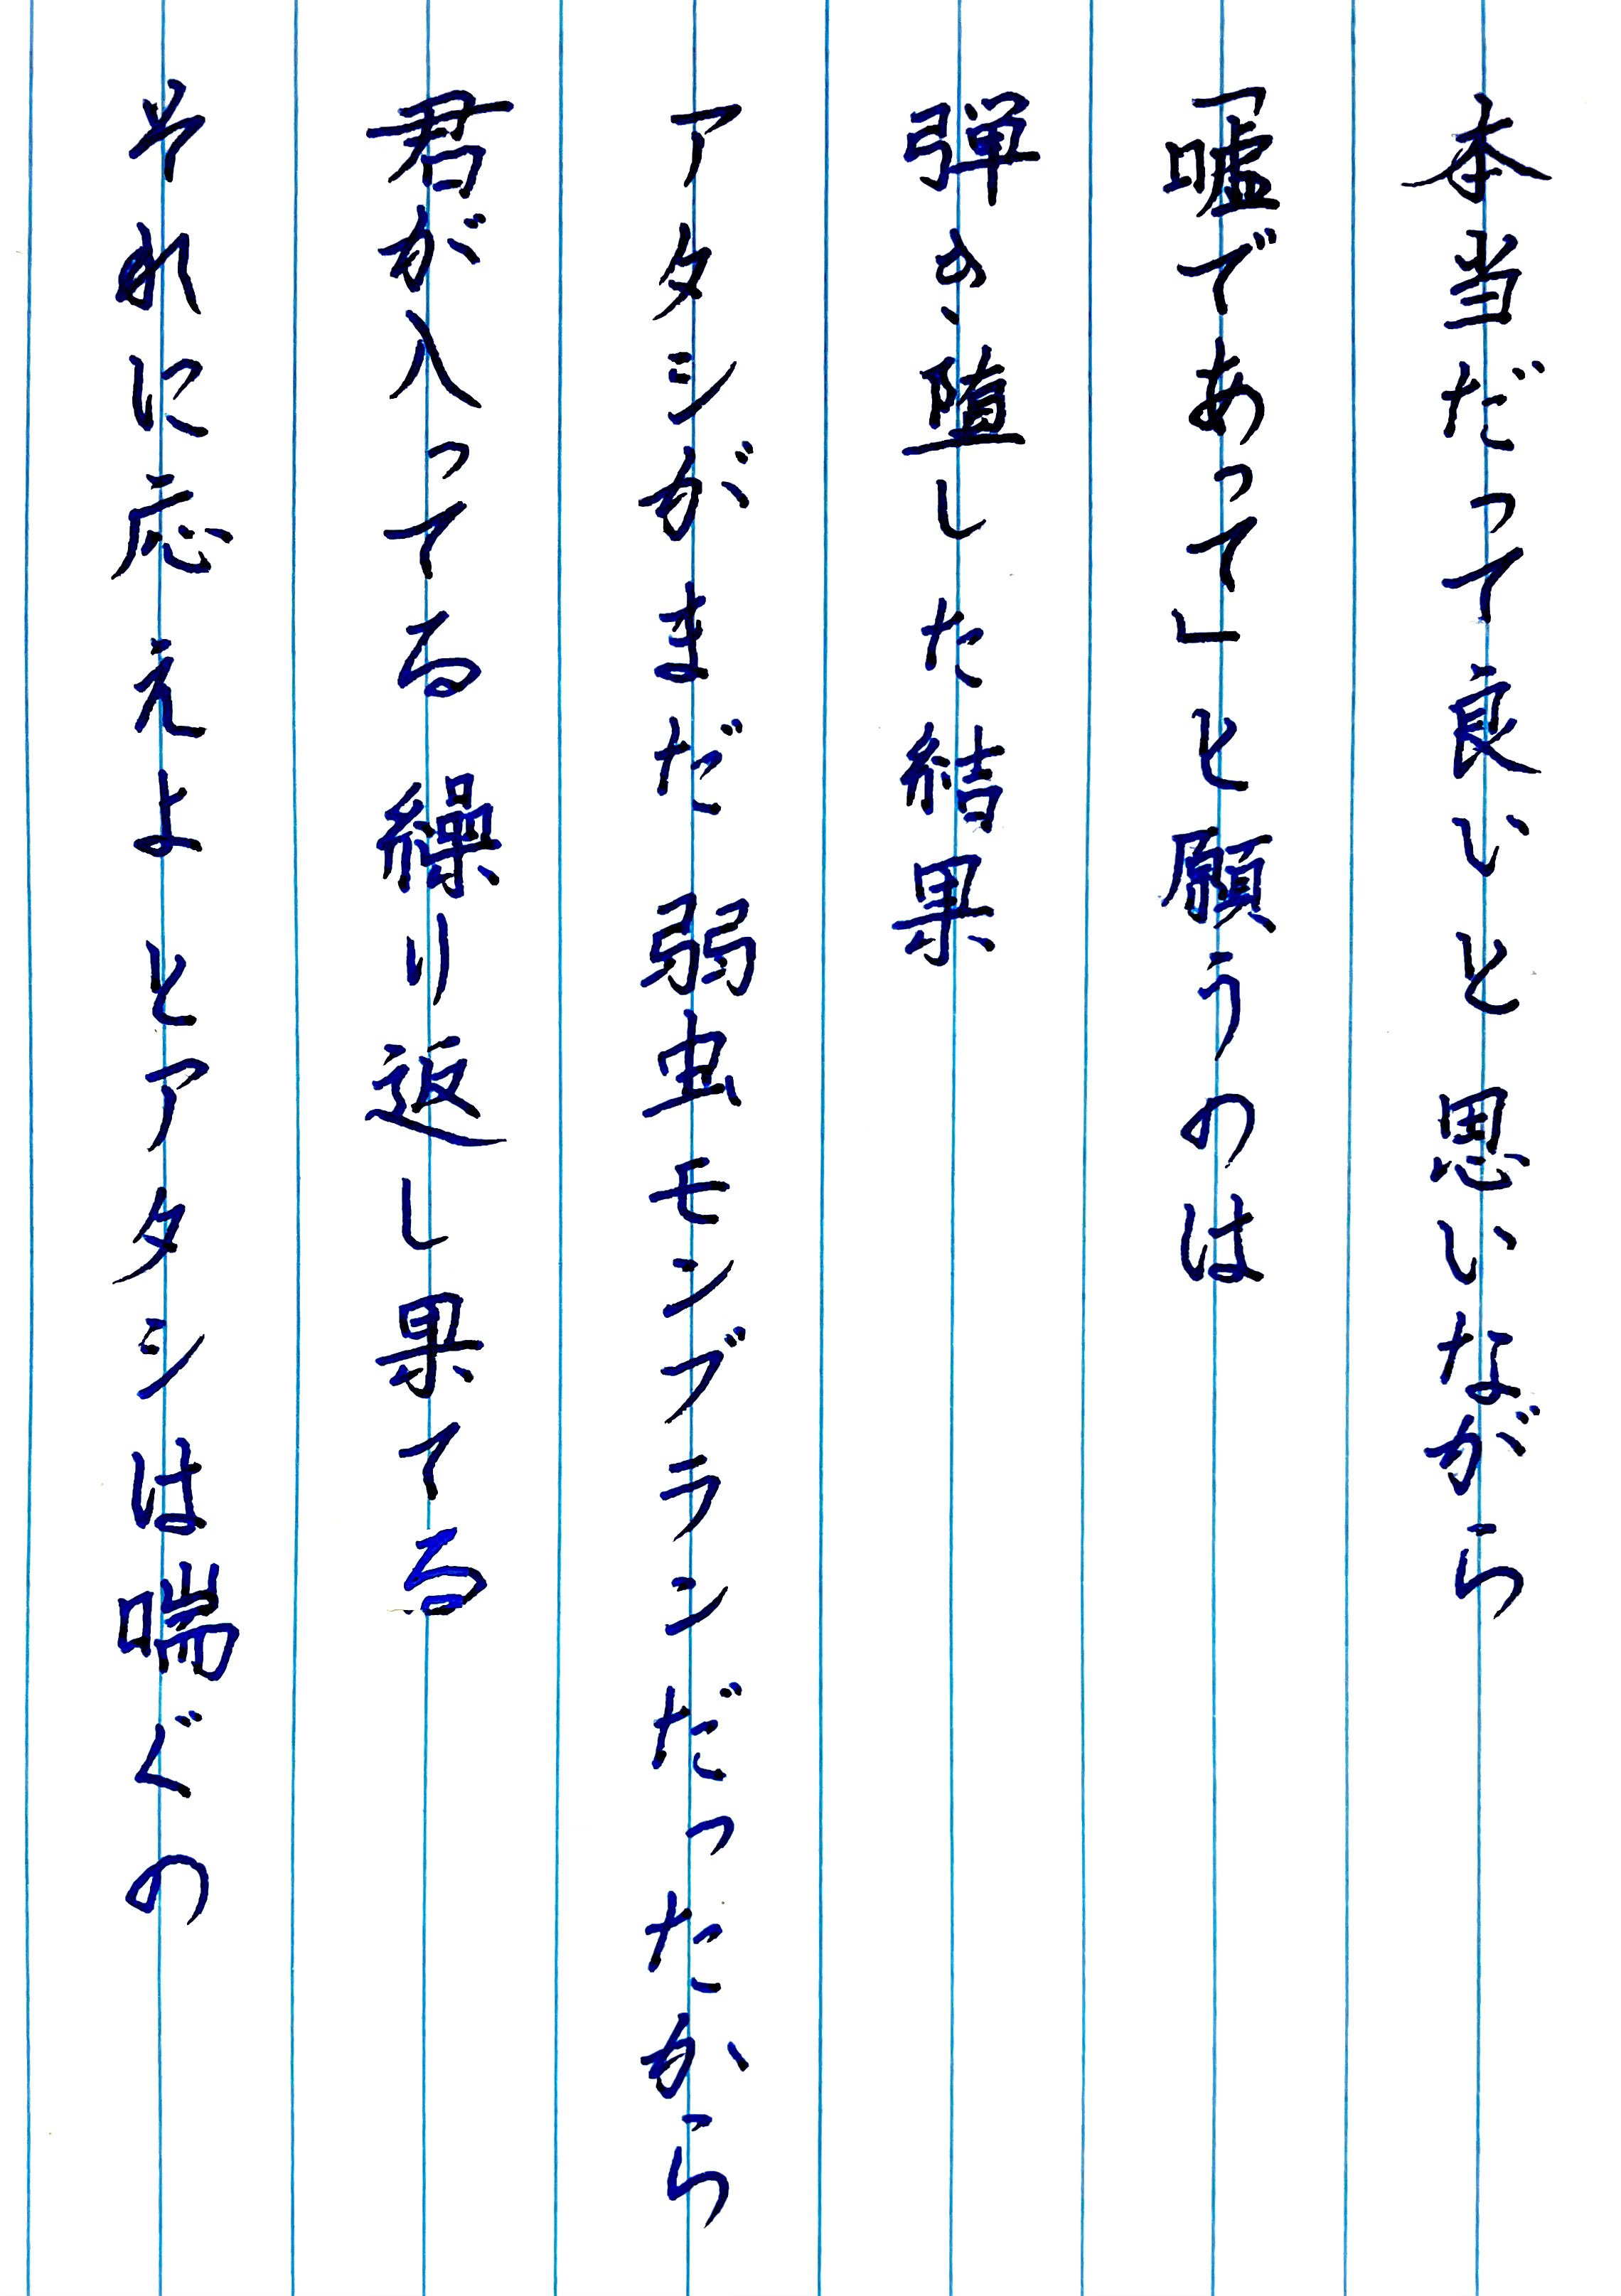 本当だって良いと 思いながら
「嘘であって」と願うのは
弾か、堕した結果
アタシがまだ 弱虫モンブランだったから
君が入ってる 繰り返し果てる
それに応えよ とアタシは喘ぐの